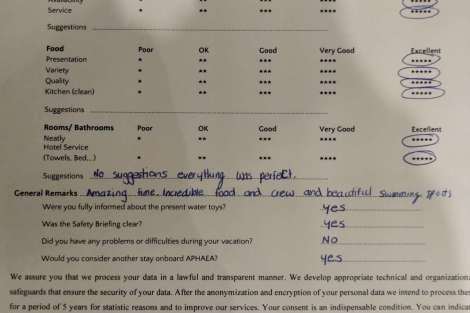 Availability * ** *** **** *****
Service * ** *** **** *****
Suggestions
Food Poor OK Good Very Good Excellent
Presentation * ** *** **** *****
Variety * ** *** **** *****
Quality * ** *** **** *****
Kitchen (clean) * ** *** **** *****
Suggestions
Rooms/ Bathrooms Poor OK Good Very Good Excellent
Neatly * ** *** **** *****
Hotel Service
(Towels, Bed...) * ** *** **** *****
Suggestions No suggestions everything was perfect.
General Remarks Amazing time. Incredible food and crew and beautiful swimming spots
Were you fully informed about the present water toys? yes
Was the Safety Briefing clear? yes
Did you have any problems or difficulties during your vacation? NO
Would you consider another stay onboard APHAEA? yes
We assure you that we process your data in a lawful and transparent manner. We develop appropriate technical and organization
safeguards that ensure the security of your data. After the anonymization and encryption of your personal data we intend to process
for a period of 5 years for statistic reasons and to improve our services. Your consent is an indispensable condition. You can